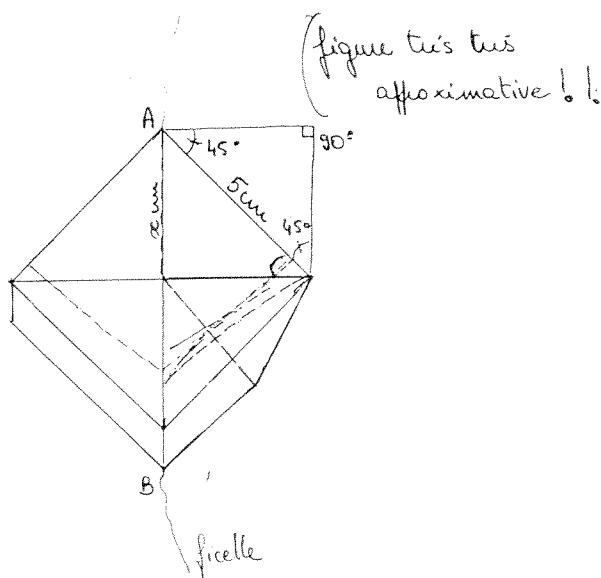 figure très très
approximative !!
A
45°
90°
5cm
x cm
45°
B
ficelle